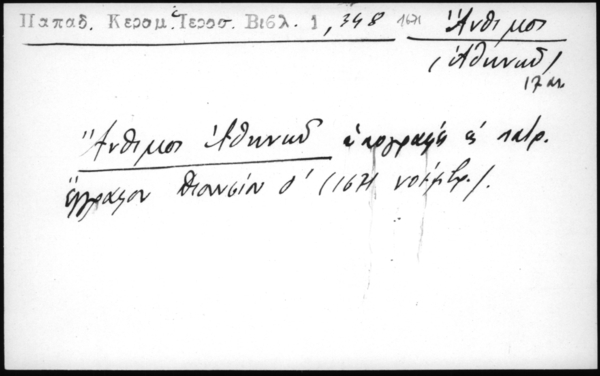 Παπαδ. Κεραμ. Ἱεροσ. Βιβλ. 1, 348 1671 Ἄνθιμος
(Ἀθηνῶν)
17 αι
Ἄνθιμος Ἀθηνῶν ὑπογραφή ἐν πατρ.
ἔγγραφον Διονυσίου δ' (1671 νοέμβρ.).